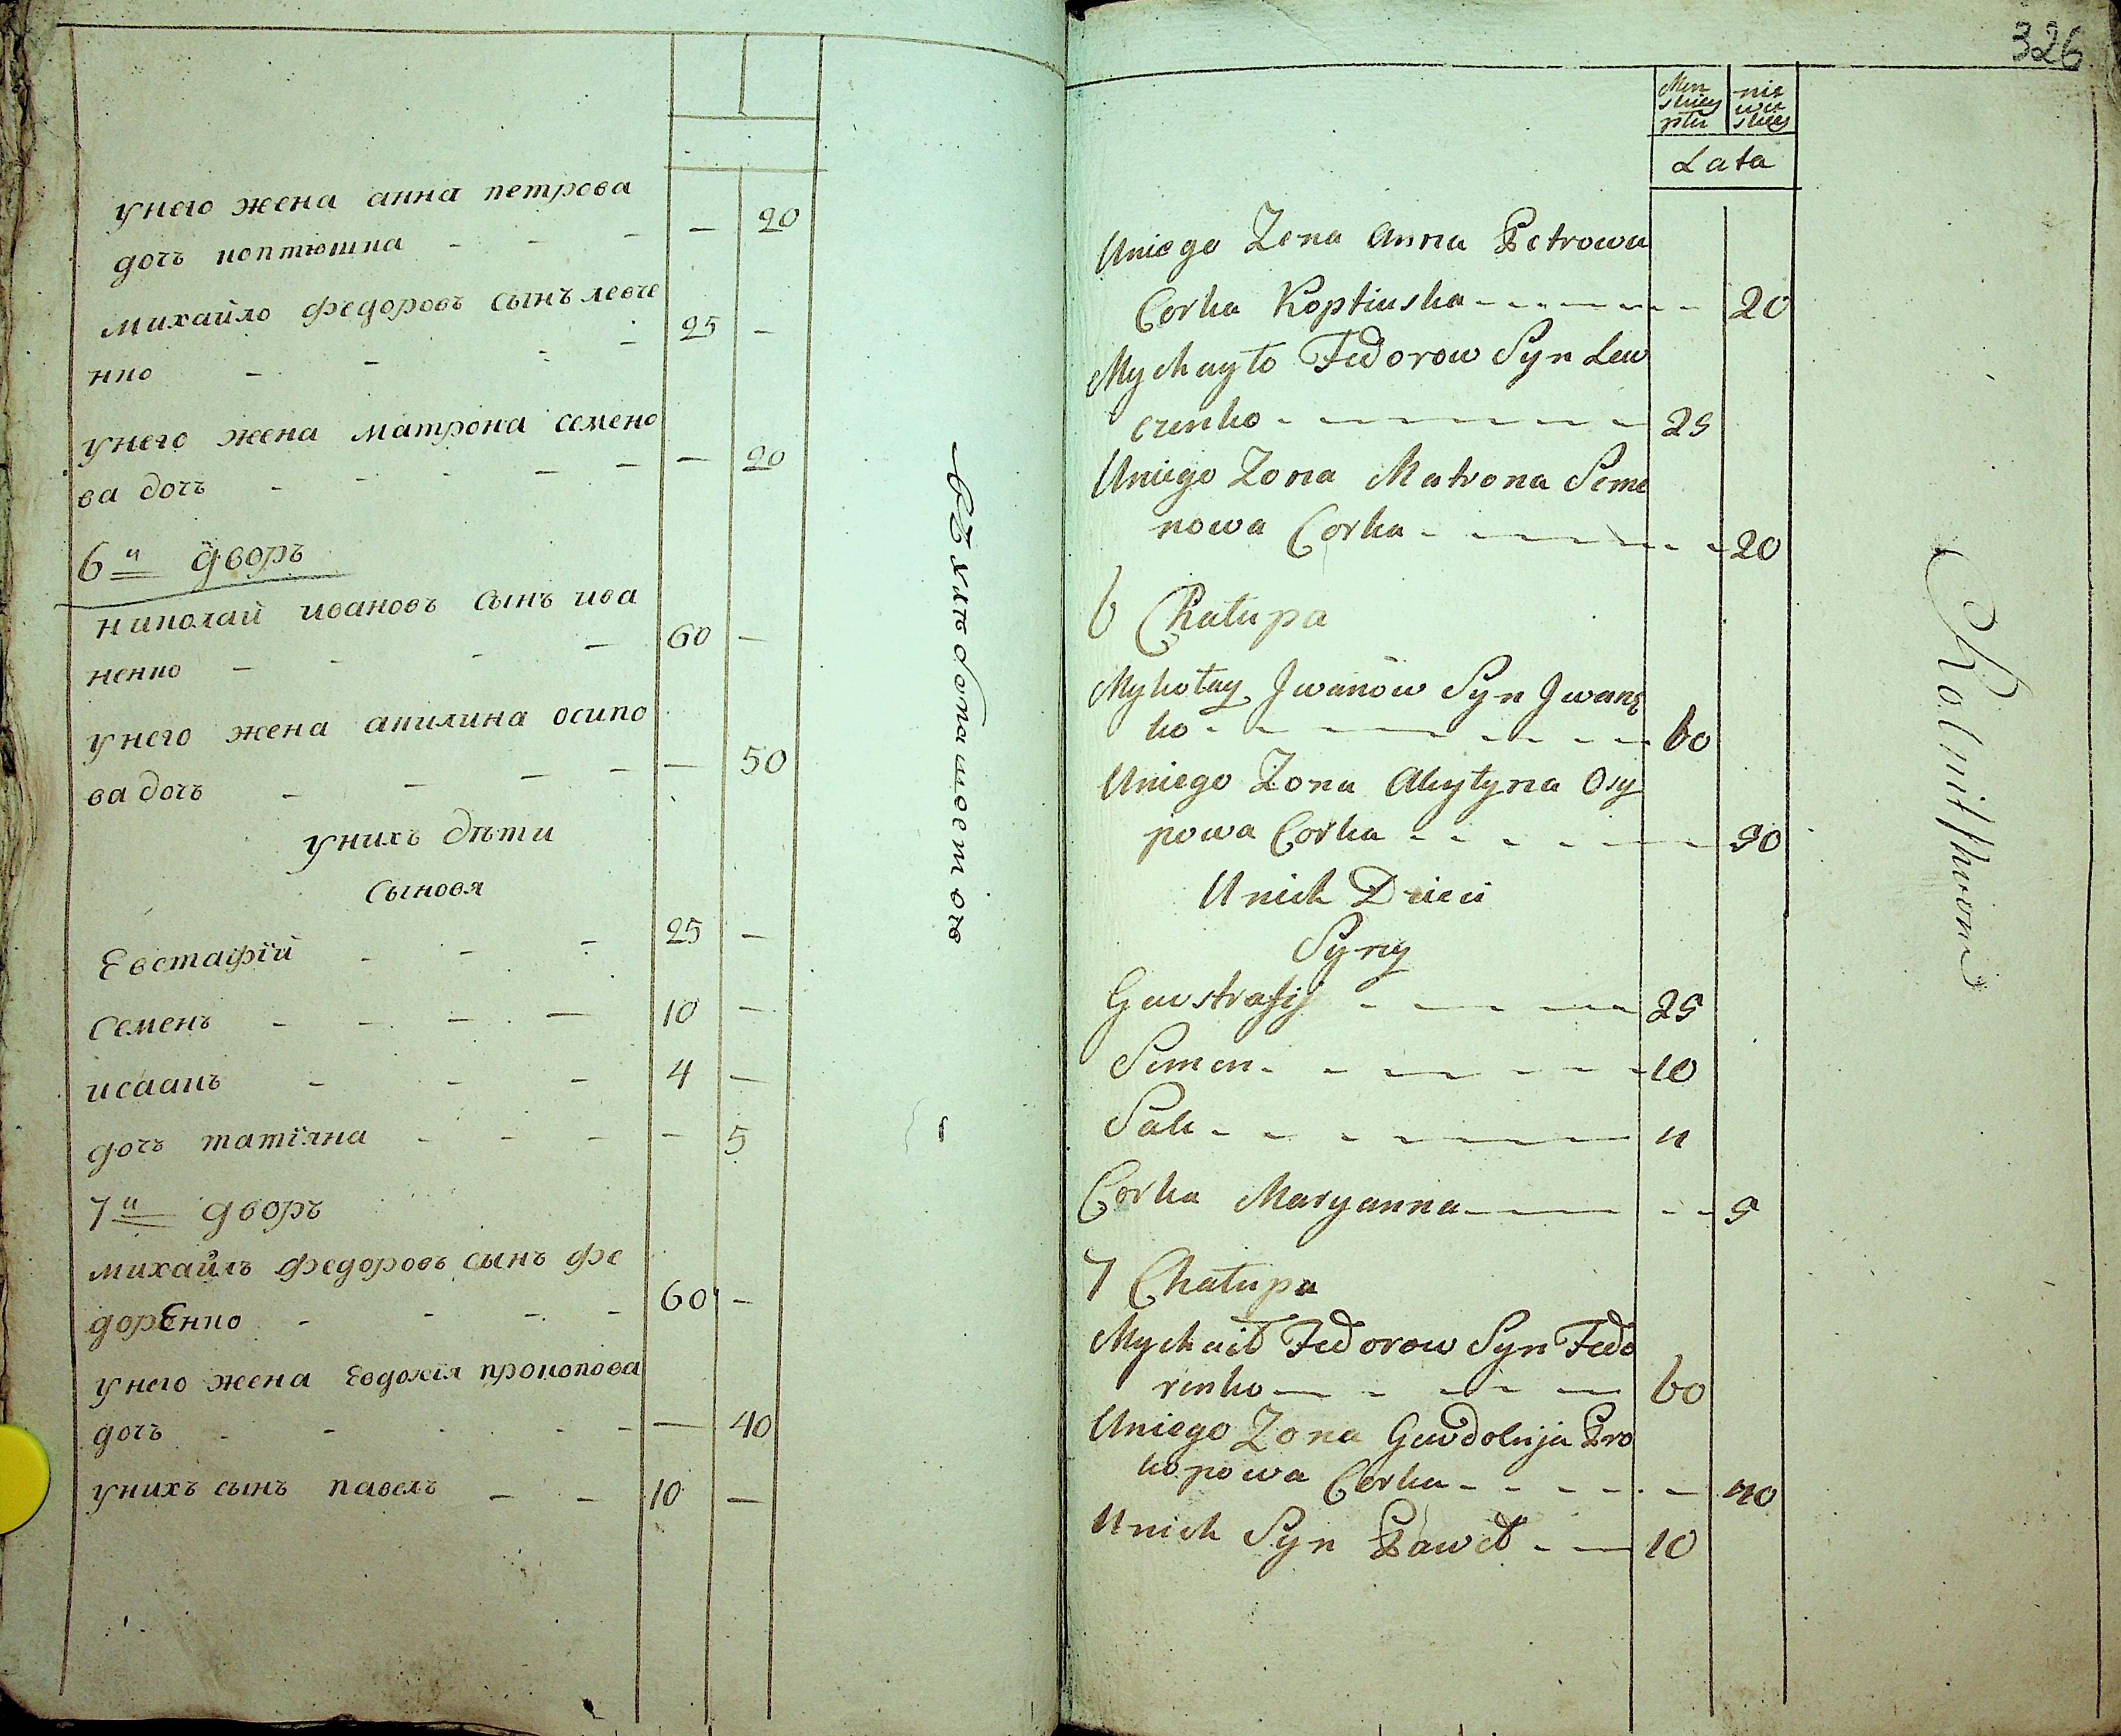 унего жена анна петрова
дочь коптюшка - - - — 20
михайло федоровъ сынъ левче
нко - - - - 25 —
унего жена матрона семено
ва дочь - - - - - — 20
6й дворъ
николай ивановъ сынъ ива
ненко - - - - 60 —
унего жена акилина осипо
ва дочь - - - - — 50
унихъ дѣти
сыновя
Евстафій - - - 25 —
семенъ - - - - 10 —
исаакъ - - - 4 —
дочь татіяна - - - — 5
7й дворъ
михайлъ федоровъ сынъ фе
дорЕнко - - - - 60 —
унего жена Евдокія прокопова
дочь - - - - - — 40
унихъ сынъ павелъ - - 10 —
326
Lata
Uniego Zena Anna Petrowa
Corka Koptiuska - - - - - - 20
Mychayło Fedorow Syn Lew
czenko - - - - - - 25
Uniego Zona Matrona Seme
nowa Corka - - - - - - 20
6 Chałupa
Mykołay Jwanow Syn Jwanę
ko - - - - - - - - 60
Uniego Zona Akyłyna Osy
powa Corka - - - - - - 50
Unich Dzieci
Syny
Gewstrafij - - - - 25
Semen - - - - - - - 10
Sak - - - - - - 4
Corka Maryanna - - - - 5
7 Chałupa
Mychaił Fedorow Syn Fedo
renko - - - - - 60
Uniego Zona Gewdokija Pro
kopowa Corka - - - - - - 40
Unich Syn Paweł - - 10